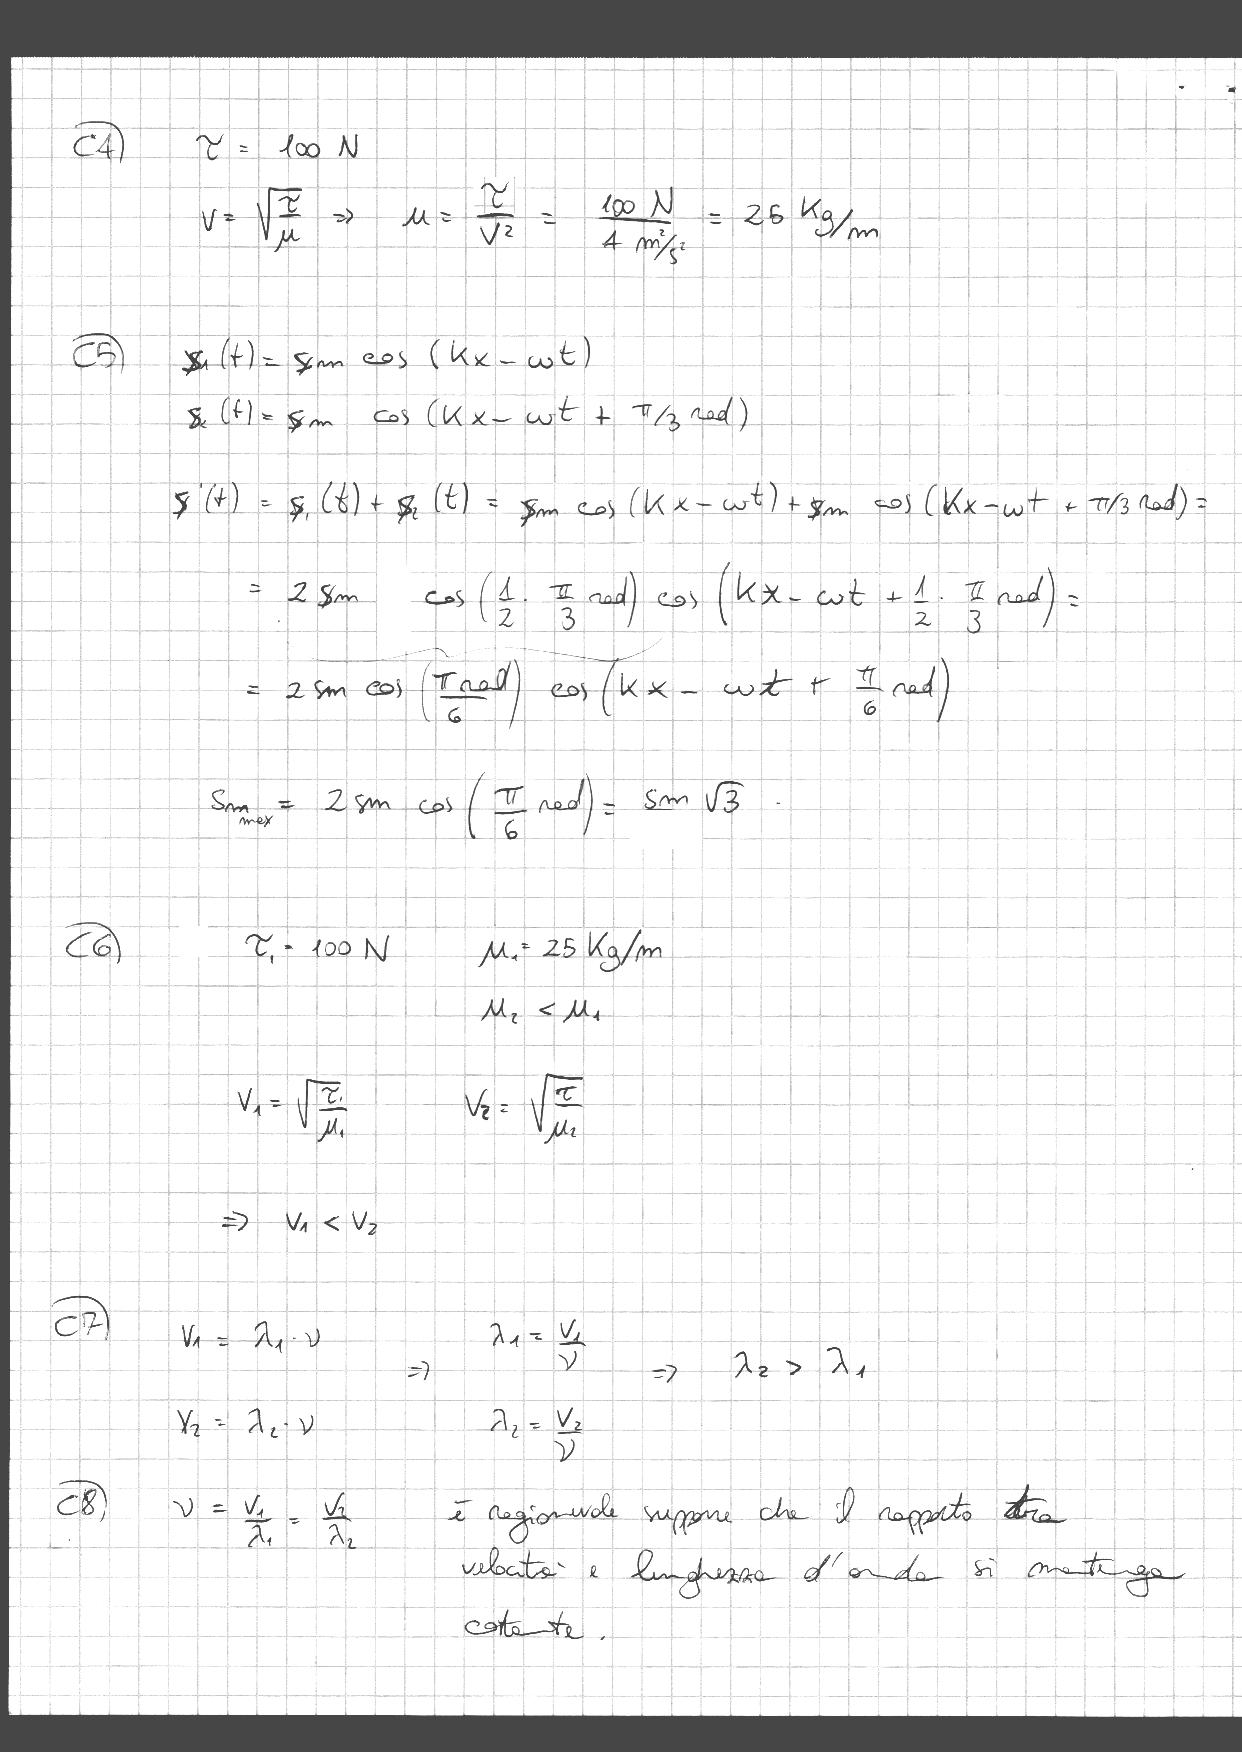 C4) τ = 100 N
v = √(τ/μ) ⇒ μ = τ/v² = 100 N / 4 m²/s² = 25 Kg/m
C5) s₁(t) = sm cos (Kx - ωt)
s₂(t) = sm cos (Kx - ωt + π/3 rad)
s'(t) = s₁(t) + s₂(t) = sm cos (Kx - ωt) + sm cos (Kx - ωt + π/3 rad) =
= 2 sm cos (1/2 · π/3 rad) cos (Kx - ωt + 1/2 · π/3 rad) =
= 2 sm cos (π rad/6) cos (Kx - ωt + π/6 rad)
Sm max = 2 sm cos (π/6 rad) = sm √3
C6) τ₁ = 100 N μ₁ = 25 Kg/m
μ₂ < μ₁
V₁ = √(τ₁/μ₁) V₂ = √(τ/μ₂)
⇒ V₁ < V₂
C7) V₁ = λ₁ · ν ⇒ λ₁ = V₁/ν ⇒ λ₂ > λ₁
V₂ = λ₂ · ν λ₂ = V₂/ν
C8) ν = V₁/λ₁ = V₂/λ₂ è ragionevole supporre che il rapporto tra
velocità e lunghezza d'onda si mantenga
costante.